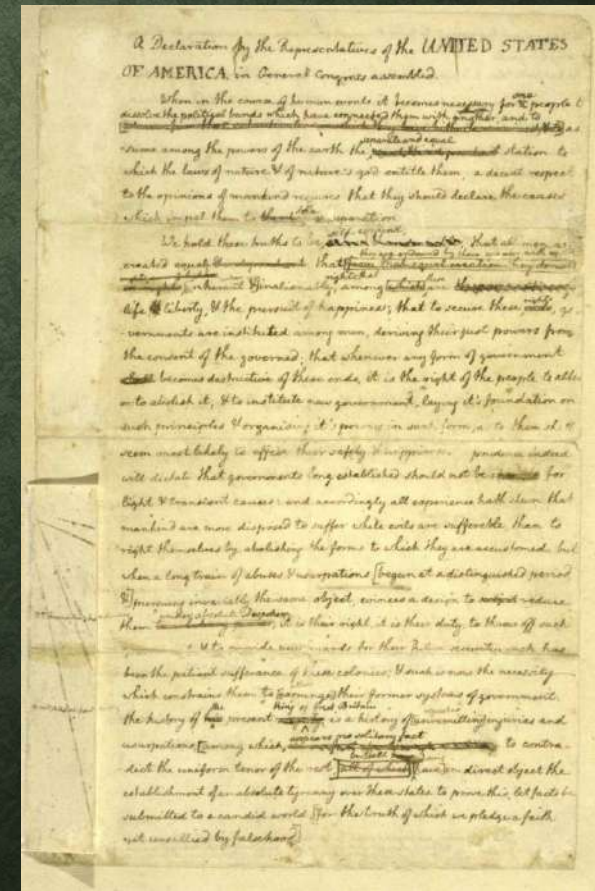 A Declaration by the Representatives of the UNITED STATES
OF AMERICA, in General Congress assembled.
When in the course of human events it becomes necessary for one people t
dissolve the political bands which have connected them with another, and to
as
sume among the powers of the earth the separate and equal station to
which the laws of nature & of nature's god entitle them, a decent respect
to the opinions of mankind requires that they should declare the causes
which impel them to the separation.
We hold these truths to be self-evident, that all men are
created equal that they are endowed by their creator with
inherent & inalienable among which are
life & liberty, & the pursuit of happiness; that to secure these rights, go
vernments are instituted among men, deriving their just powers from
the consent of the governed; that whenever any form of government
becomes destructive of these ends, it is the right of the people to alter
or to abolish it, & to institute new government, laying it's foundation on
such principles & organising it's powers in such form, as to them shall
seem most likely to effect their safety & happiness. prudence indeed
will dictate that governments long established should not be for
light & transient causes: and accordingly all experience hath shewn that
mankind are more disposed to suffer while evils are sufferable, than to
right themselves by abolishing the forms to which they are accustomed. but
when a long train of abuses & usurpations [begun at a distinguished period
&] pursuing invariably the same object, evinces a design to reduce
them under absolute Despotism, it is their right, it is their duty to throw off such
& to provide new guards for their future security. such has
been the patient sufferance of these colonies; & such is now the necessity
which constrains them to [expunge] their former systems of government.
the history of the present king of Great Britain is a history of [unremitting] injuries and
usurpations, [among which, appears no solitary fact to contra-
dict the uniform tenor of the rest [all of which] [have] in direct object the
establishment of an absolute tyranny over these states. to prove this, let facts be
submitted to a candid world [for the truth of which we pledge a faith
yet unsullied by falsehood]